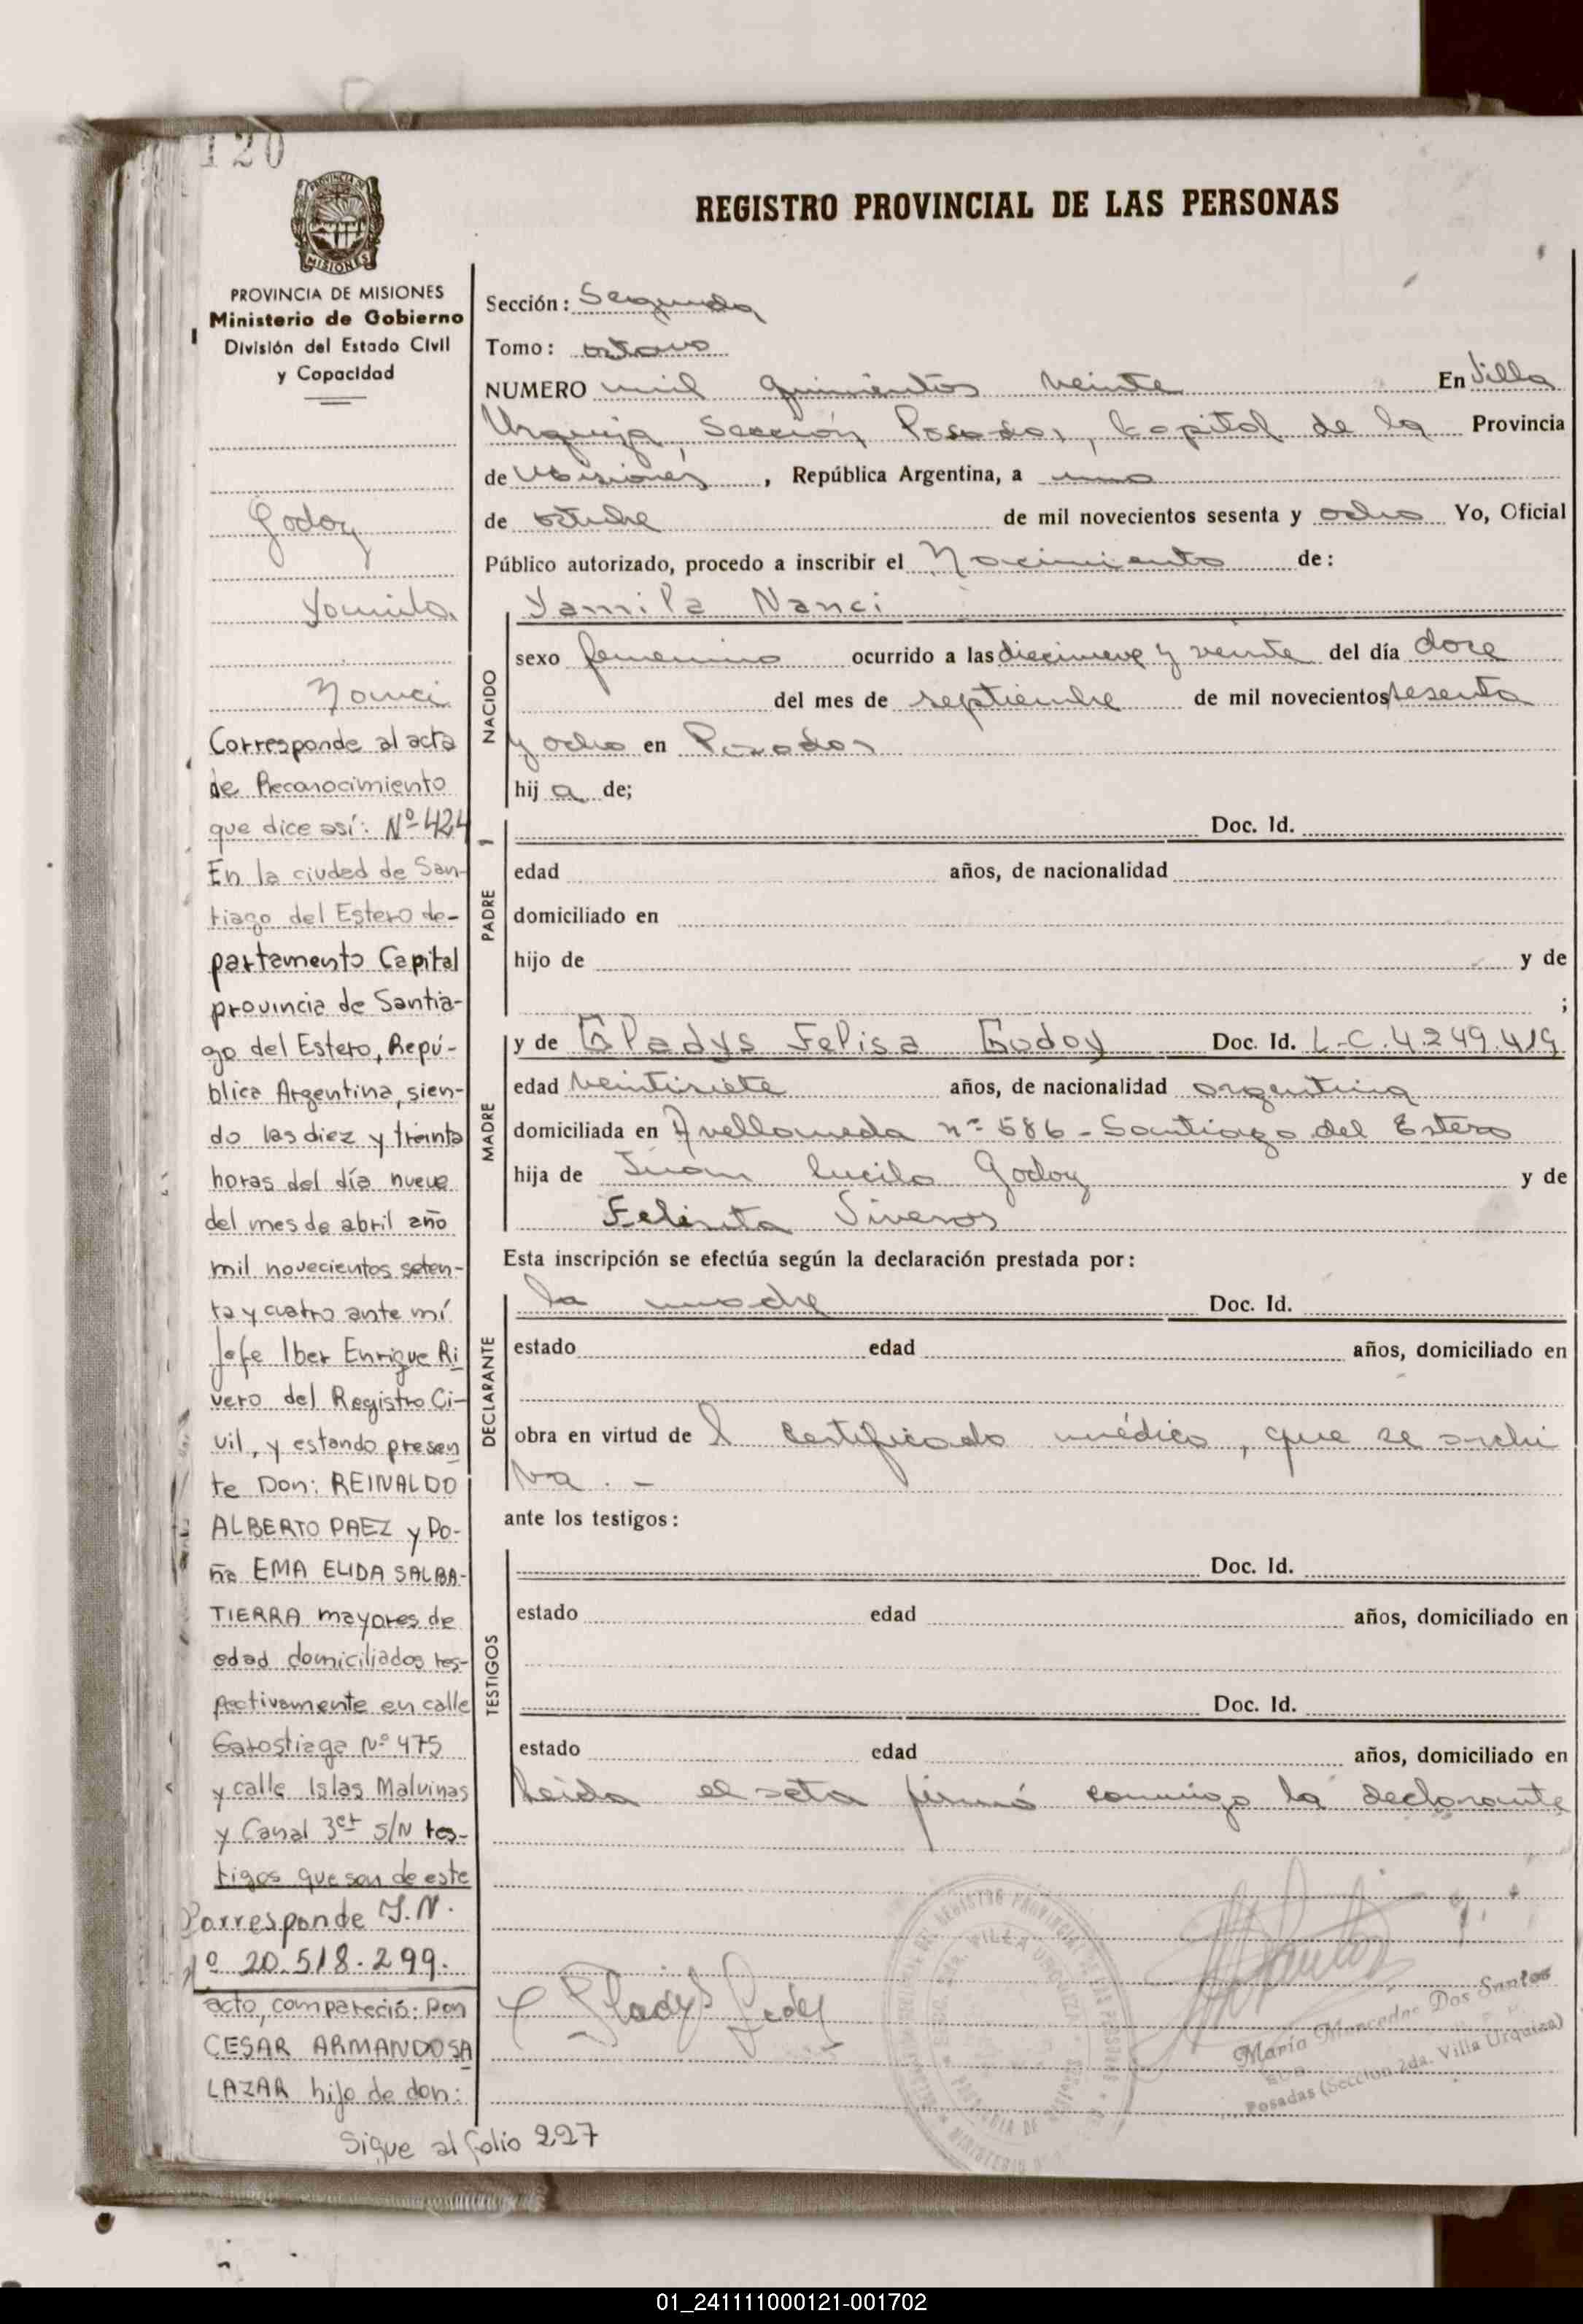 120
PROVINCIA DE MISIONES
MISIONES
PROVINCIA DE MISIONES
Ministerio de Gobierno
División del Estado Civil
y Capacidad
Godoy
Yamila
Nanci
Corresponde al acta
de Reconocimiento
que dice así: Nº 424
En la ciudad de San-
tiago del Estero de-
partamento Capital
provincia de Santia-
go del Estero, Repú-
blica Argentina, sien-
do las diez y treinta
horas del día nueve
del mes de abril año
mil novecientos seten-
ta y cuatro ante mí
Jefe Iber Enrique Ri
vero del Registro Ci-
vil, y estando presen
te Don: REINALDO
ALBERTO PAEZ y Do-
ña EMA ELIDA SALBA-
TIERRA mayores de
edad domiciliados res-
pectivamente en calle
Garostiaga Nº 475
y calle Islas Malvinas
y Canal 3er S/N tes-
tigos que son de este
Corresponde I.N.
Nº 20.518.299.
acto, compareció: Don
CESAR ARMANDO SA
LAZAR hijo de don:
Sigue al folio 227
REGISTRO PROVINCIAL DE LAS PERSONAS
Sección: Segunda
Tomo: octavo
NUMERO mil quinientos veinte En Villa
Urquiza, Sección Posadas, Capital de la Provincia
de Misiones, República Argentina, a uno
de octubre de mil novecientos sesenta y ocho Yo, Oficial
Público autorizado, procedo a inscribir el Nacimiento de:
NACIDO
Yamila Nanci
sexo femenino ocurrido a las diecinueve y veinte del día doce
del mes de septiembre de mil novecientos sesenta
y ocho en Posadas
hij a de;
PADRE
Doc. Id.
edad años, de nacionalidad
domiciliado en
hijo de y de
;
MADRE
y de Gladys Felisa Godoy Doc. Id. L.C. 4.249.419
edad veintisiete años, de nacionalidad argentina
domiciliada en Avellaneda nº 586 - Santiago del Estero
hija de Juan Lucila Godoy y de
Felisita Siveros
Esta inscripción se efectúa según la declaración prestada por:
DECLARANTE
la madre Doc. Id.
estado edad años, domiciliado en
obra en virtud de l certificado médico, que se archi
va . -
ante los testigos:
TESTIGOS
Doc. Id.
estado edad años, domiciliado en
Doc. Id.
estado edad años, domiciliado en
Leída el acta firmó conmigo la declarante
Gladys Godoy
VILLA URQUIZA
María Mercedes Dos Santos
Posadas (Sección 2da. Villa Urquiza)
01_241111000121-001702